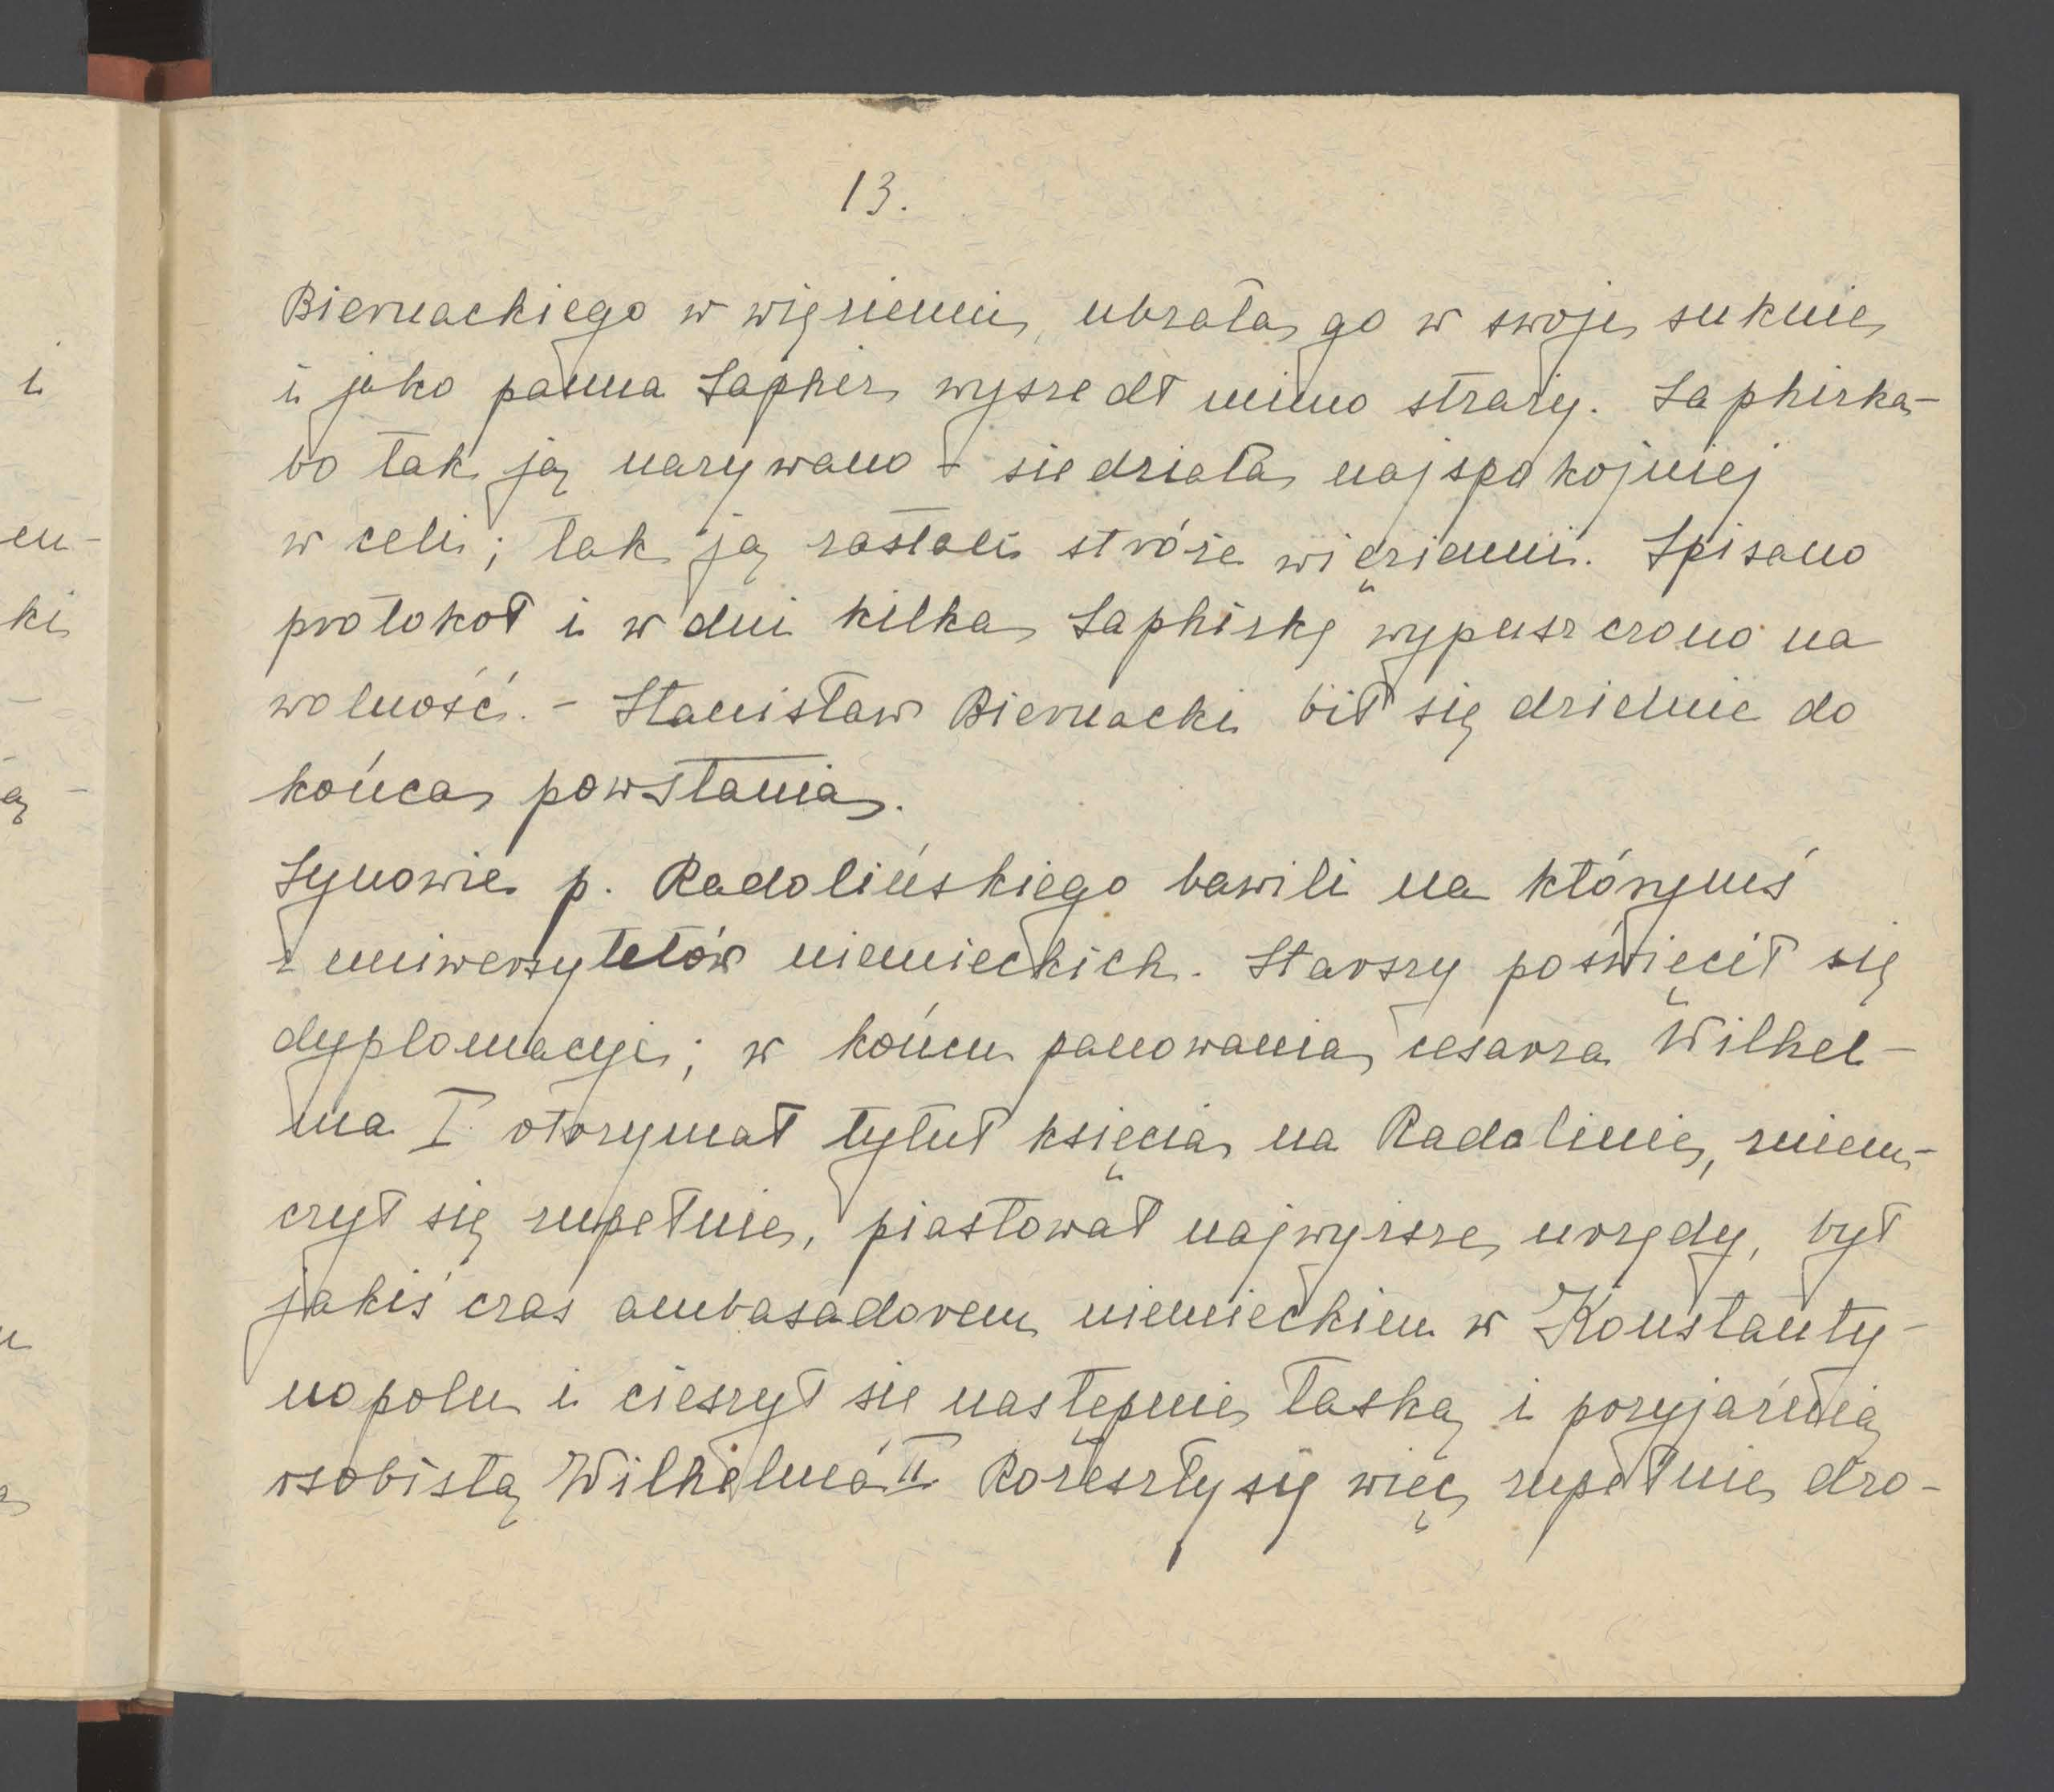 13.
Biernackiego w więzieniu, ubrała go w swoje suknie
i jako panna Saphir wyszedł mimo straży. Saphirka-
bo tak ją nazywano - siedziała najspokojniej
w celi; tak ją zastali stróże więzienni. Spisano
protokół i w dni kilka Saphirkę wypuszczono na
wolność. - Stanisław Biernacki bił się dzielnie do
końca powstania.
Synowie p. Radolińskiego bawili na którymś
z uniwersytetów niemieckich. Starszy poświęcił się
dyplomacyi; w końcu panowania cesarza Wilhel-
ma I otrzymał tytuł księcia na Radolinie, zniem-
czył się zupełnie, piastował najwyższe urzędy, był
jakiś czas ambasadorem niemieckiem w Konstanty-
nopolu i cieszył się następnie łaską i przyjaźnią
osobistą Wilhelma II Rozeszły się więc zupełnie dro-
i
en-
ki